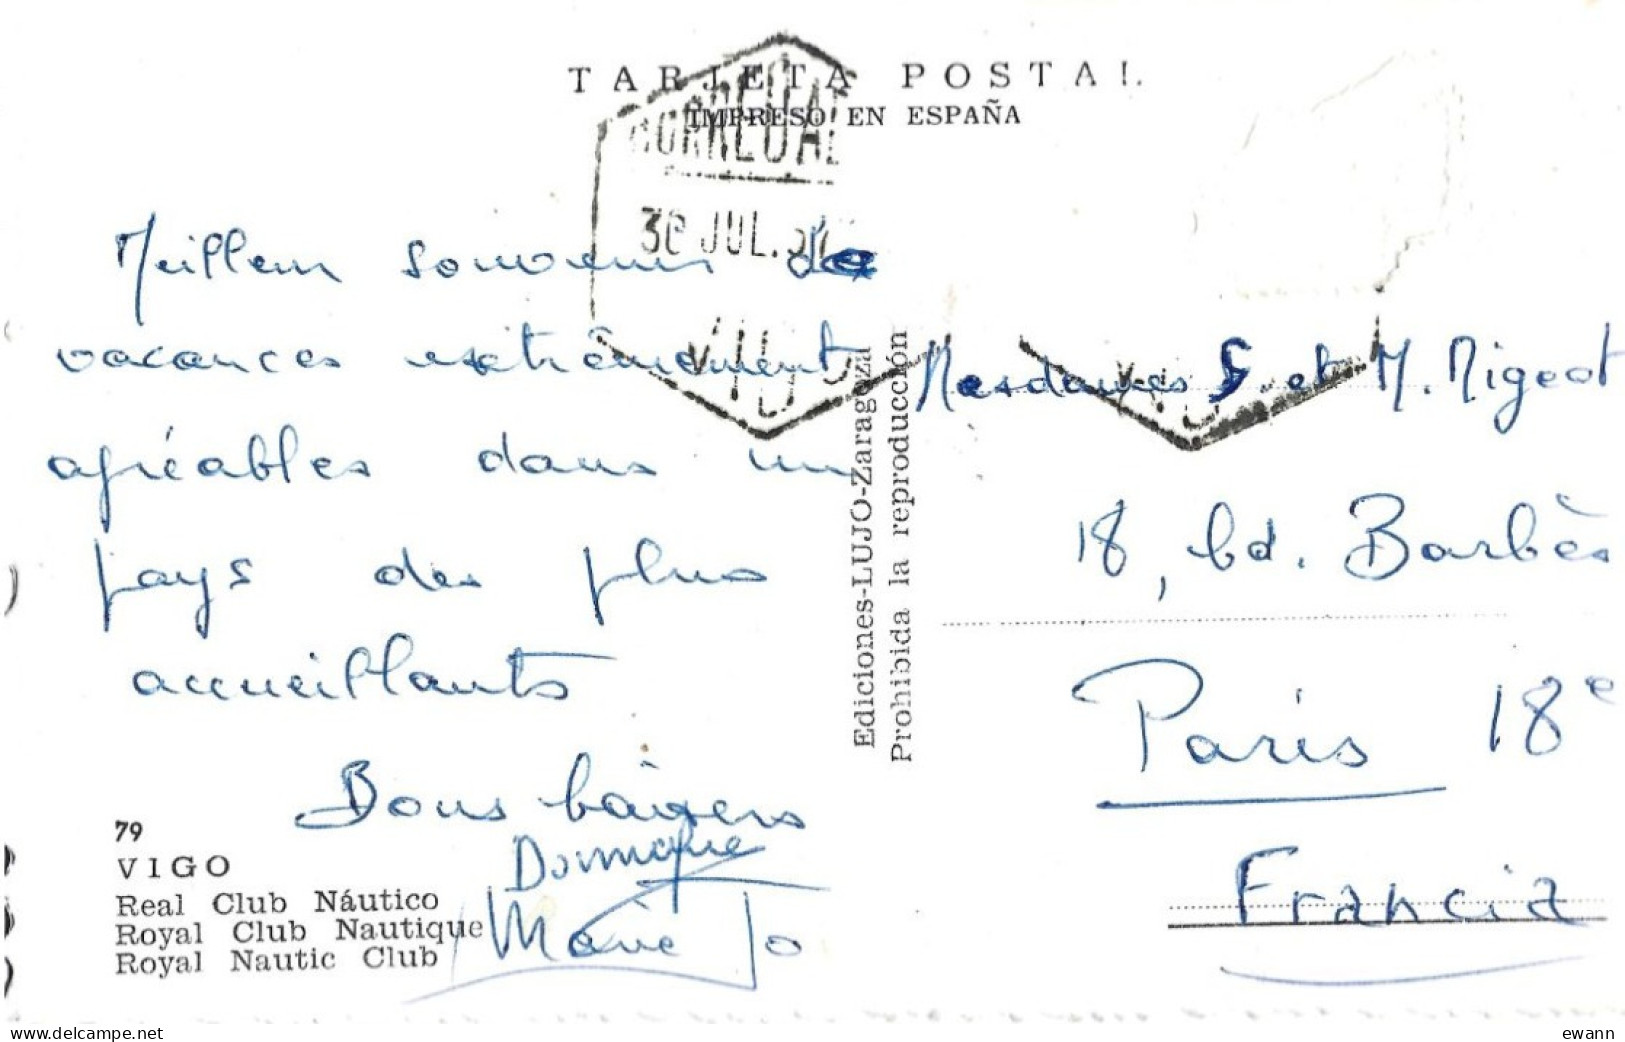 TARJETA POSTAL
IMPRESO EN ESPAÑA
30 JUL. 57
VIGO
Meilleurs souvenirs de
vacances extrêmement
agréables dans un
pays des plus
accueillants
Bons baisers
Dominique
Marie Jo
79
VIGO
Real Club Náutico
Royal Club Nautique
Royal Nautic Club
Ediciones-LUJO-Zaragoza
Prohibida la reproducción
Mesdames S. et M. Migeot
18, bd. Barbès
Paris 18e
Francia
delcampe.net
ewann